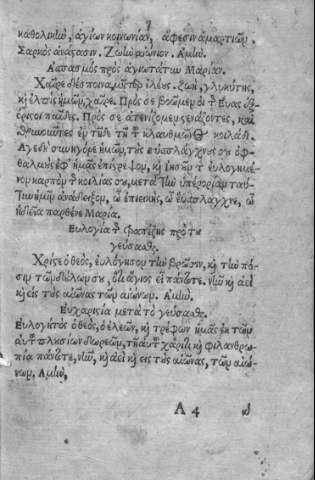 καθολικὴν, ἁγίων κοινωνίαν, ἄφεσιν ἁμαρτιῶν.
Σαρκὸς ἀνάστασιν. Ζωὴν αἰώνιον. Ἀμήν.
Ἀσπασμὸς πρὸς ἁγιωτάτην Μαρίαν.
Χαῖρε δέσποινα, μῆτερ ἐλέους, ζωὴ, γλυκύτης,
καὶ ἐλπὶς ἡμῶν, χαῖρε. Πρὸς σὲ βοῶμεν οἱ τῆς Εὔας ἐξ
παῖδες. Πρὸς σὲ ἀτενίζομεν στενάζοντες, καὶ
ἐν τῇδε τῇ τοῦ κλαυθμῶνος κοιλάδι.
Ἄγε δὴ συνήγορε ἡμῶν, τοὺς εὐσπλάγχνους σου ὀφ-
θαλμοὺς ἐφ' ἡμᾶς ἐπίστρεψον, καὶ Ἰησοῦν τὸν εὐλογημέ-
νον καρπὸν τῆς κοιλίας σου, μετὰ τὴν ὑπερορίαν ταύ-
την ἡμῖν ἀνάδειξον, ὦ ἐπιεικὴς, ὦ εὔσπλαγχνε, ὦ
ἡδεῖα παρθένε Μαρία.
Εὐλογία τῆς τραπέζης πρὸ τοῦ
γεύσασθαι.
Χριστὲ ὁ θεὸς, εὐλόγησον τὴν βρῶσιν, καὶ τὴν πό-
σιν τῶν δούλων σου, ὅτι ἅγιος εἶ πάντοτε, νῦν καὶ ἀεὶ
καὶ εἰς τοὺς αἰῶνας τῶν αἰώνων. Ἀμήν.
Εὐχαριστία μετὰ τὸ γεύσασθαι.
Εὐλογητὸς ὁ θεὸς, ὁ ἐλεῶν, καὶ τρέφων ἡμᾶς ἐκ τῶν
αὐτοῦ πλουσίων δωρεῶν, τῇ αὐτοῦ χάριτι καὶ φιλανθρω-
πίᾳ πάντοτε, νῦν, καὶ ἀεὶ καὶ εἰς τοὺς αἰῶνας, τῶν αἰώ-
νων, Ἀμήν,
A 4